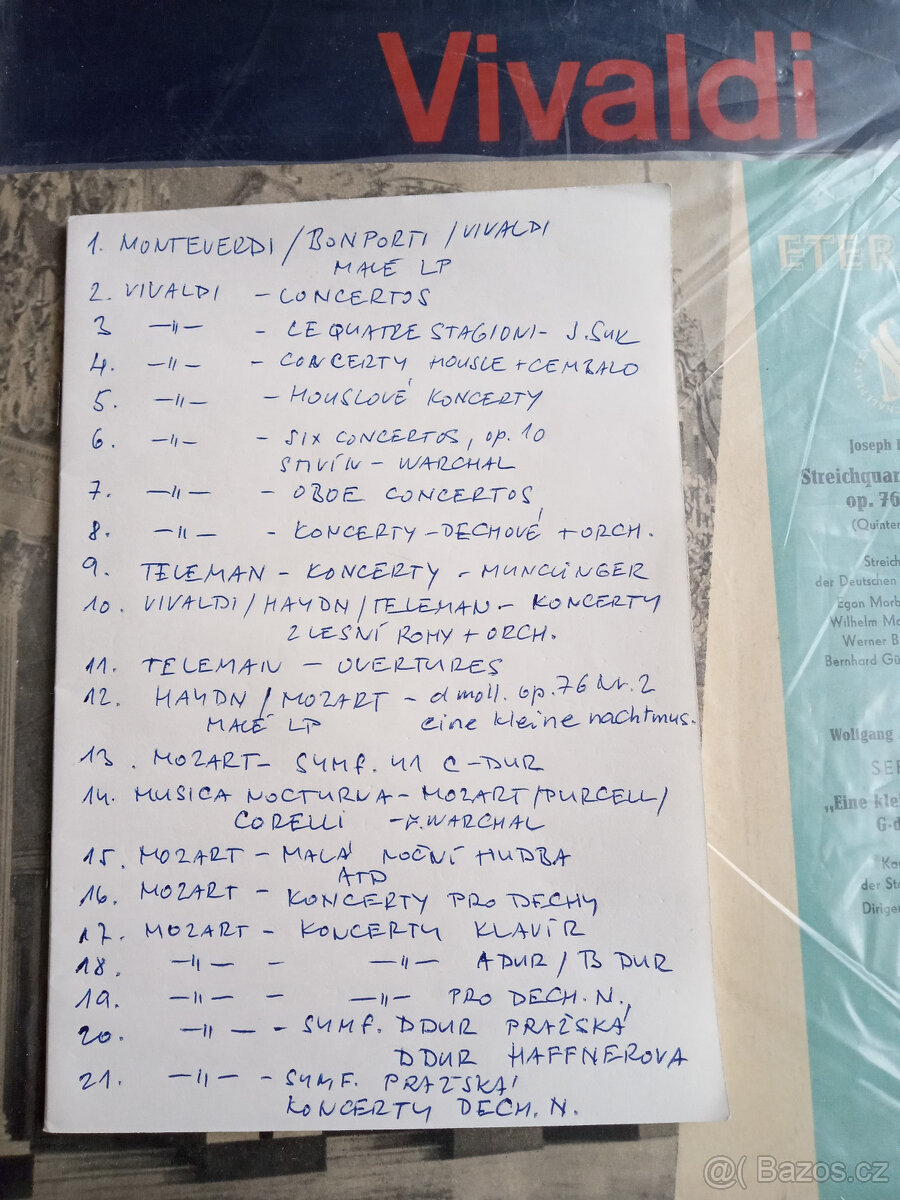 Vivaldi
1. MONTEVERDI / BONPORTI / VIVALDI
MALÉ LP
2. VIVALDI - CONCERTOS
3 —"— - LE QUATRE STAGIONI - J. SUK
4. —"— - CONCERTY HOUSLE + CEMBALO
5. —"— - HOUSLOVÉ KONCERTY
6. —"— - SIX CONCERTOS, op. 10
STIVÍN - WARCHAL
7. —"— - OBOE CONCERTOS
8. —"— - KONCERTY - DECHOVÉ + ORCH.
9. TELEMAN - KONCERTY - MUNCLINGER
10. VIVALDI / HAYDN / TELEMAN - KONCERTY
2 LESNÍ ROHY + ORCH.
11. TELEMAN - OVERTURES
12. HAYDN / MOZART - d moll. op. 76 Nr. 2
MALÉ LP eine kleine nachtmus.
13. MOZART - SYMF. 41 C-DUR
14. MUSICA NOCTURNA - MOZART / PURCELL /
CORELLI - WARCHAL
15. MOZART - MALÁ NOČNÍ HUDBA
ATD
16. MOZART - KONCERTY PRO DECHY
17. MOZART - KONCERTY KLAVÍR
18. —"— - —"— A DUR / B DUR
19. —"— - —"— PRO DECH. N.
20. —"— - SYMF. D DUR PRAŽSKÁ
D DUR HAFFNEROVA
21. —"— - SYMF. PRAŽSKÁ
KONCERTY DECH. N.
ETER
Joseph
Streichquar
op. 76
(Quinten
Streich
der Deutschen
Egon Morb
Wilhelm Ma
Werner B
Bernhard Gü
Wolfgang
SER
„Eine klei
G-d
Kam
der Sta
Dirigen
@( Bazos.cz